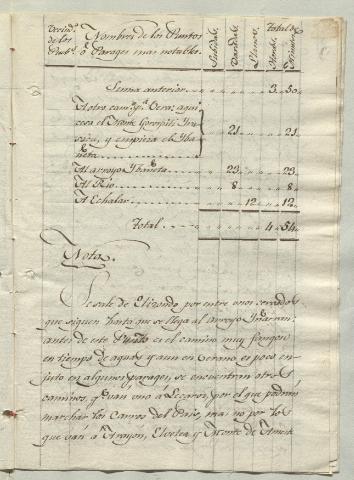 Vecind.
de los
Pueb.s
Nombres de los Puntos
ó Parages mas notables.
Subida.
Bajada.
Llano.
Total de
Horas.
Minutos.
Suma anterior 3. 50.
A otro cam.o p.a Vera: aqui
cesa el Monte
y empieza el Yba-
ñeta 21. 21.
Al arroyo Ybañeta 23. 23.
Al Rio 8 8.
A Echalar 12 12.
Total 4 54.
Nota.
Se sale de Elizondo por entre unos cerrados
que siguen hasta que se llega al arroyo
antes de este Punto es el camino muy fangoso
en tiempo de aguas, y aun en Verano es poco en-
juto en algunos parages, se encuentran otros
caminos, q.e van uno á Lecaroz, por el que podrán
marchar los Carros del Pais, mas no por los
que ván á Arrayoz, Elvetea y Puente de